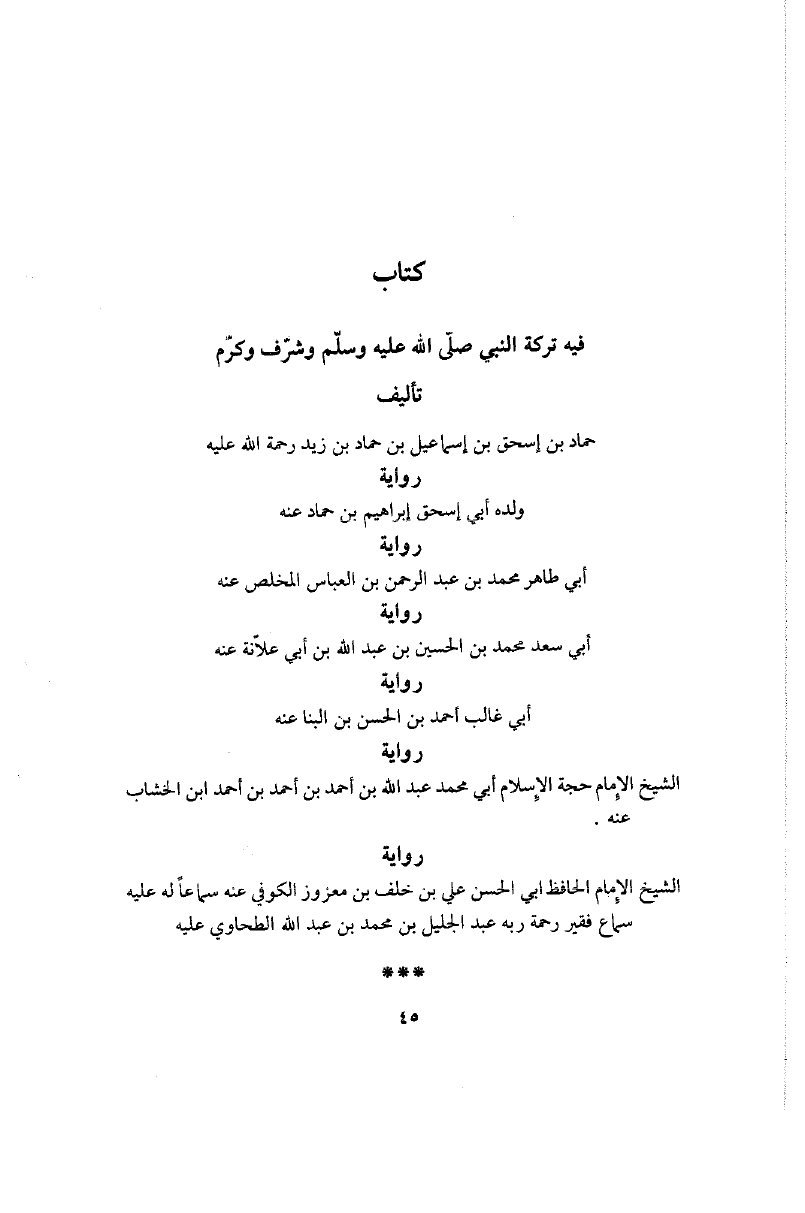 كتاب
فيه تركة النبي صلّى الله عليه وسلّم وشرّف وكرّم
تأليف
حماد بن إسحق بن إسماعيل بن حماد بن زيد رحمة الله عليه
رواية
ولده أبي إسحق إبراهيم بن حماد عنه
رواية
أبي طاهر محمد بن عبد الرحمن بن العباس المخلص عنه
رواية
أبي سعد محمد بن الحسين بن عبد الله بن أبي علاّنة عنه
رواية
أبي غالب أحمد بن الحسن بن البنا عنه
رواية
الشيخ الإمام حجة الإسلام أبي محمد عبد الله بن أحمد بن أحمد بن أحمد ابن الخشاب
عنه .
رواية
الشيخ الإمام الحافظ ابي الحسن علي بن خلف بن معزوز الكوفي عنه سماعاً له عليه
سماع فقير رحمة ربه عبد الجليل بن محمد بن عبد الله الطحاوي عليه
***
٤٥